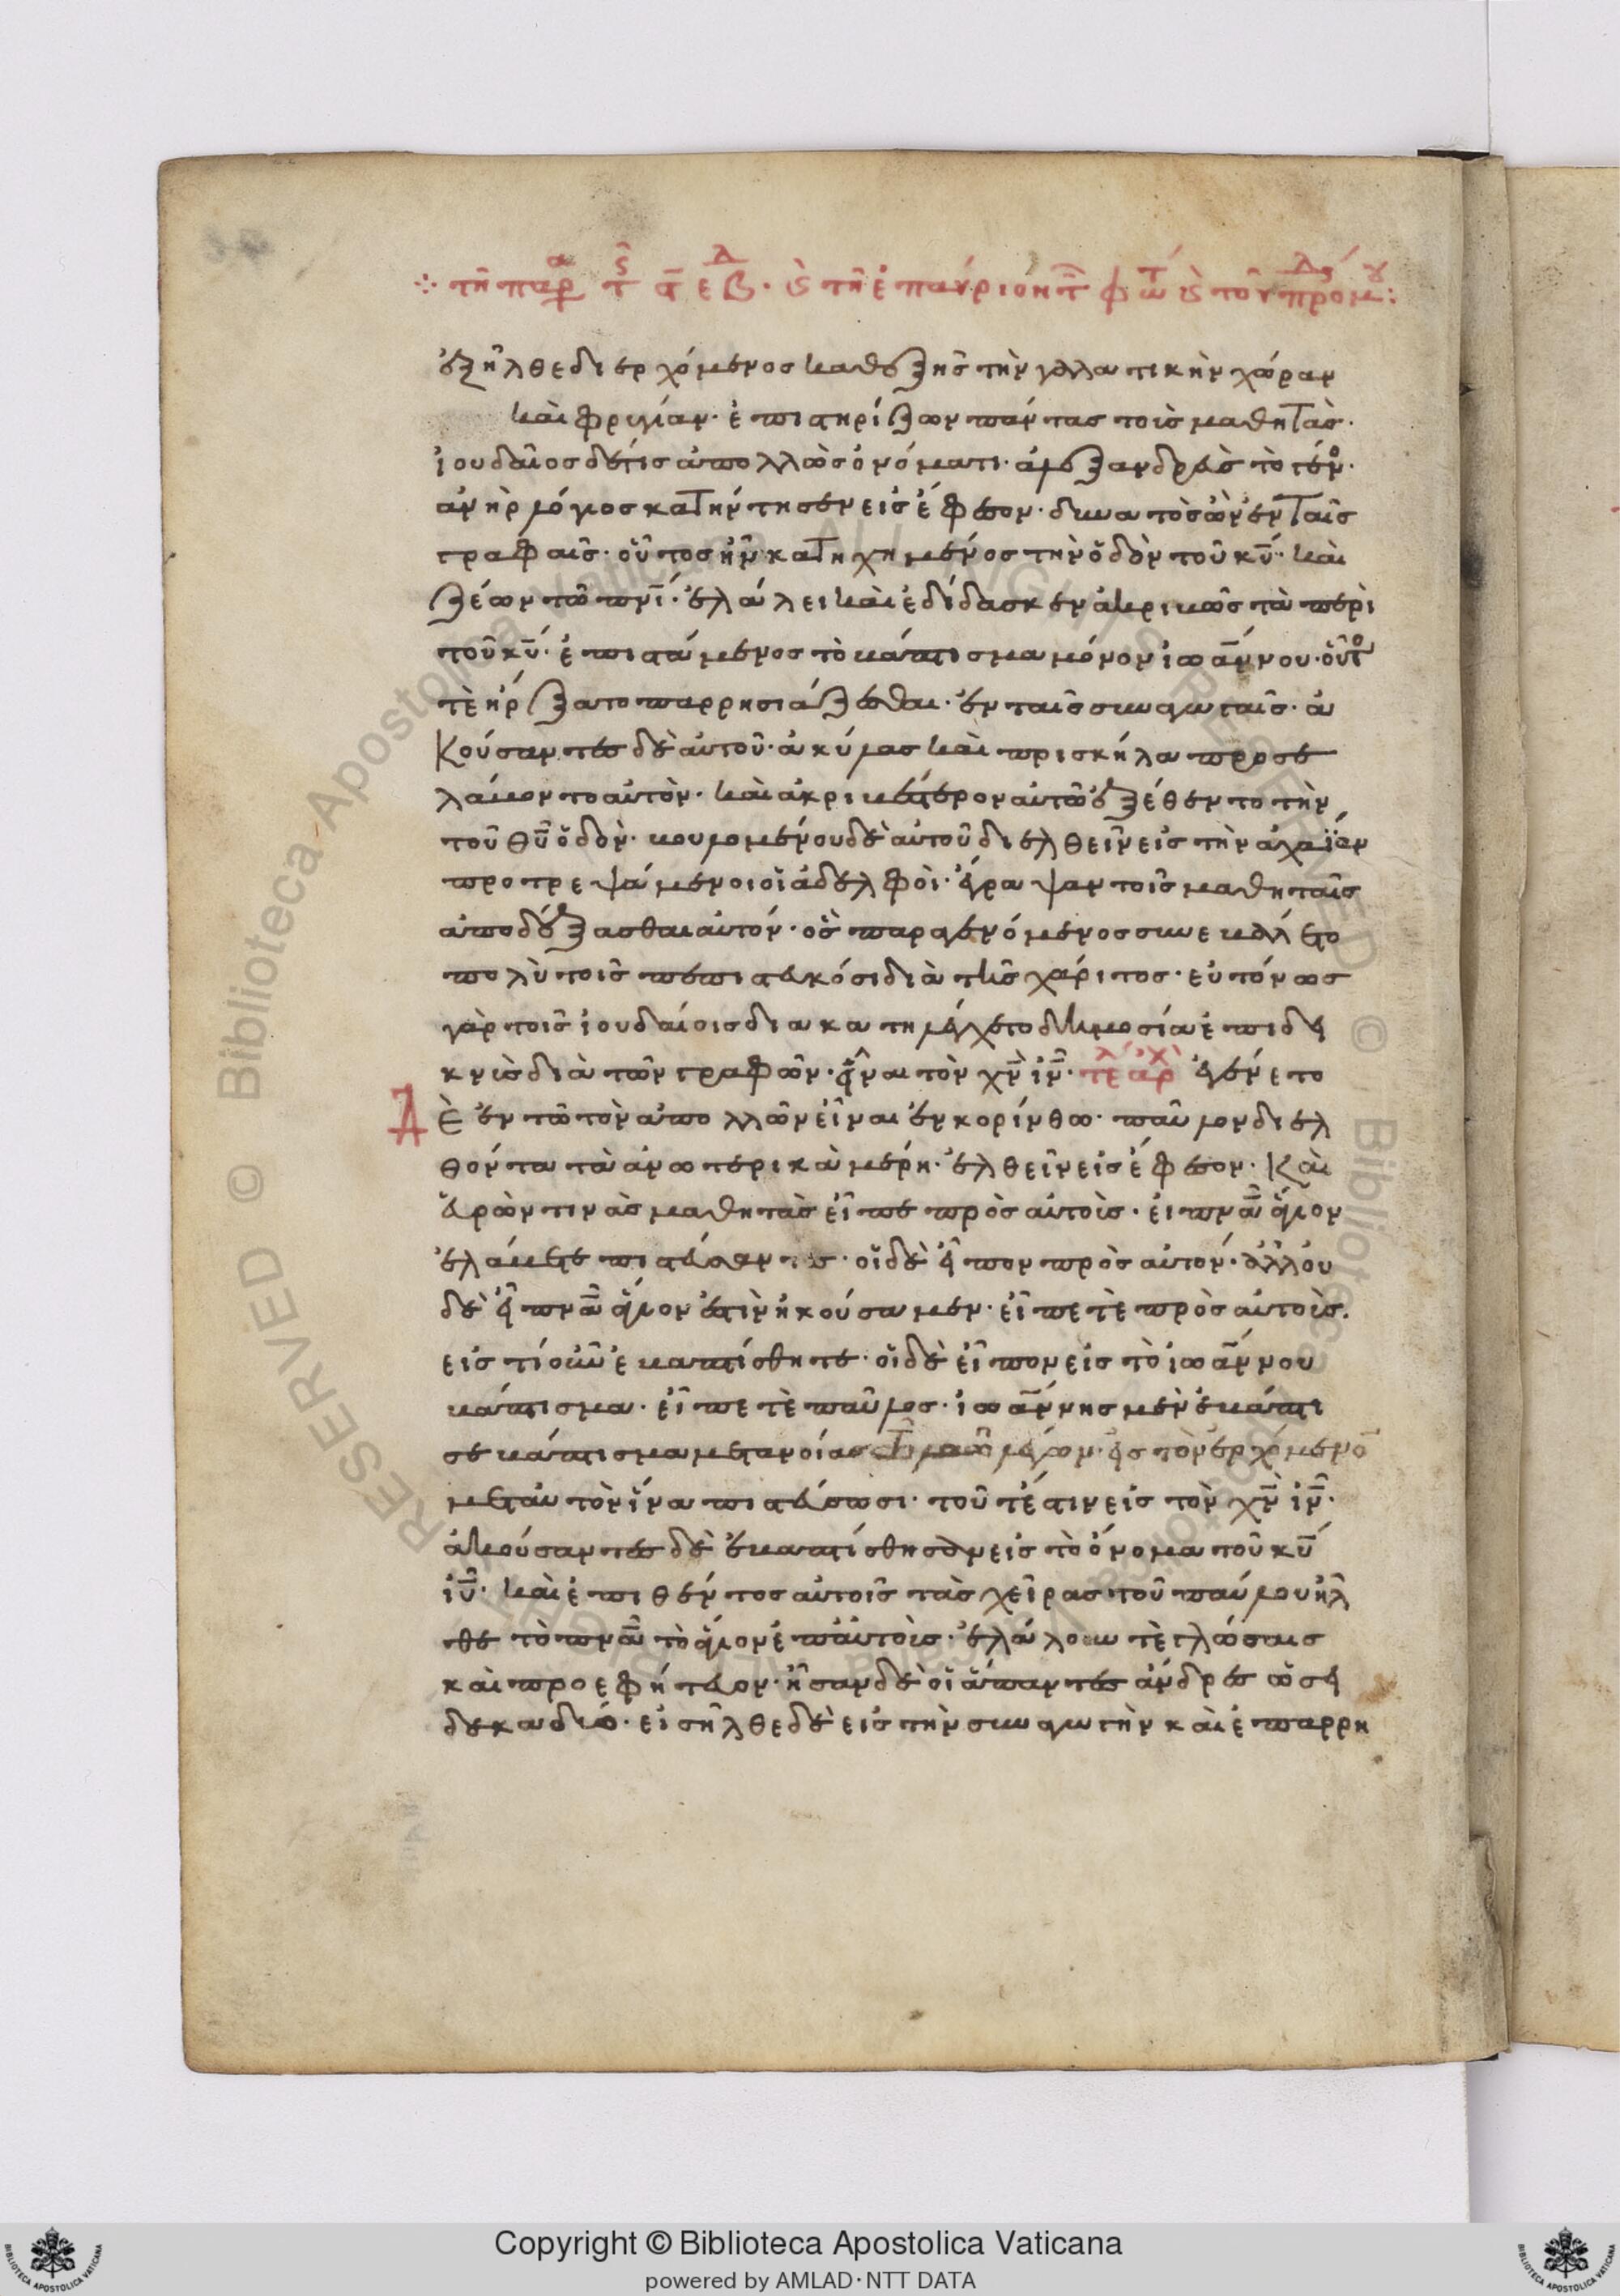 τῆ παρ τ ς ε β · κ τῆ ἐπαύριον τ φώτ κ τοῦ προμ :
ἐξῆλθε διερχόμενος καθεξῆς τὴν γαλατικὴν χώραν
καὶ φρυγίαν· ἐπιστηρίζων πάντας τοὺς μαθητὰς·
ἰουδαῖος δέ τις ἀπολλὼς ὀνόματι· ἀλεξανδρεὺς τὸ γέν
ἀνὴρ λόγιος κατήντησεν εἰς ἔφεσον· δυνατὸς ὢν ἐν ταῖς
γραφαῖς· οὗτος ἦν κατηχημένος τὴν ὁδὸν τοῦ κυ· καὶ
ζέων τῶ πνι· ἐλάλει καὶ ἐδίδασκεν ἀκριβῶς τὰ περὶ
τοῦ κυ· ἐπιστάμενος τὸ βάπτισμα μόνον ἰωάννου· οὗτ
τὲ ἤρξατο παρρησιάζεσθαι· ἐν ταῖς συναγωγαῖς· ἀ
κούσαντες δὲ αὐτοῦ· ἀκύλας καὶ πρισκήλα προσε
λάβοντο αὐτὸν· καὶ ἀκριβέστερον αὐτῶ ἐξέθεντο τὴν
τοῦ θυ ὁδὸν· βουλομένου δὲ αὐτοῦ διελθεῖν εἰς τὴν ἀχαΐαν
προτρεψάμενοι οἱ ἀδελφοὶ· ἔγραψαν τοῖς μαθηταῖς
ἀποδέξασθαι αὐτόν· ὃς παραγενόμενος συνεβάλετο
πολὺ τοῖς πεπιστευκόσι διὰ τῆς χάριτος· εὐτόνως
γὰρ τοῖς ἰουδαίοις διακατηλέγχετο δημοσία ἐπιδει
κνὺς διὰ τῶν γραφῶν· εἶναι τὸν χν ιν· τε ἀρχ ἐγένετο
Δὲ ἐν τῶ τὸν ἀπολλῶν εἶναι ἐν κορίνθω· παῦλον διελ
θόντα τὰ ἀνωτερικὰ μέρη· ἐλθεῖν εἰς ἔφεσον· καὶ
εὑρὼν τινὰς μαθητὰς εἶπε πρὸς αὐτοὺς· εἰ πνα ἅγιον
ἐλάβετε πιστεύσαντες· οἱ δὲ εἶπον πρὸς αὐτόν· ἀλλ' οὐ
δὲ εἰ πνα ἅγιον ἐστὶν ἠκούσαμεν· εἶπε τὲ πρὸς αὐτοὺς.
εἰς τί οὖν ἐβαπτίσθητε· οἱ δὲ εἶπον εἰς τὸ ἰωάννου
βάπτισμα· εἶπε τὲ παῦλος· ἰωάννης μὲν ἐβάπτι
σε βάπτισμα μετανοίας τῶ λαῶ λέγων· εἰς τὸν ἐρχόμενο
μετ' αὐτὸν ἵνα πιστεύσωσι· τοῦτέστιν εἰς τὸν χν ιν·
ἀκούσαντες δὲ ἐβαπτίσθησαν εἰς τὸ ὄνομα τοῦ κυ
ιυ· καὶ ἐπιθέντος αὐτοῖς τὰς χεῖρας τοῦ παύλου ἦλ
θε τὸ πνα τὸ ἅγιον ἐπ' αὐτοὺς· ἐλάλουν τὲ γλώσσαις
καὶ προεφήτευον· ἦσαν δὲ οἱ ἅπαντες ἄνδρες ὡσεὶ
δεκαδύο· εἰσῆλθε δὲ εἰς τὴν συναγωγὴν καὶ ἐπαρρη
Copyright © Biblioteca Apostolica Vaticana
powered by AMLAD·NTT DATA